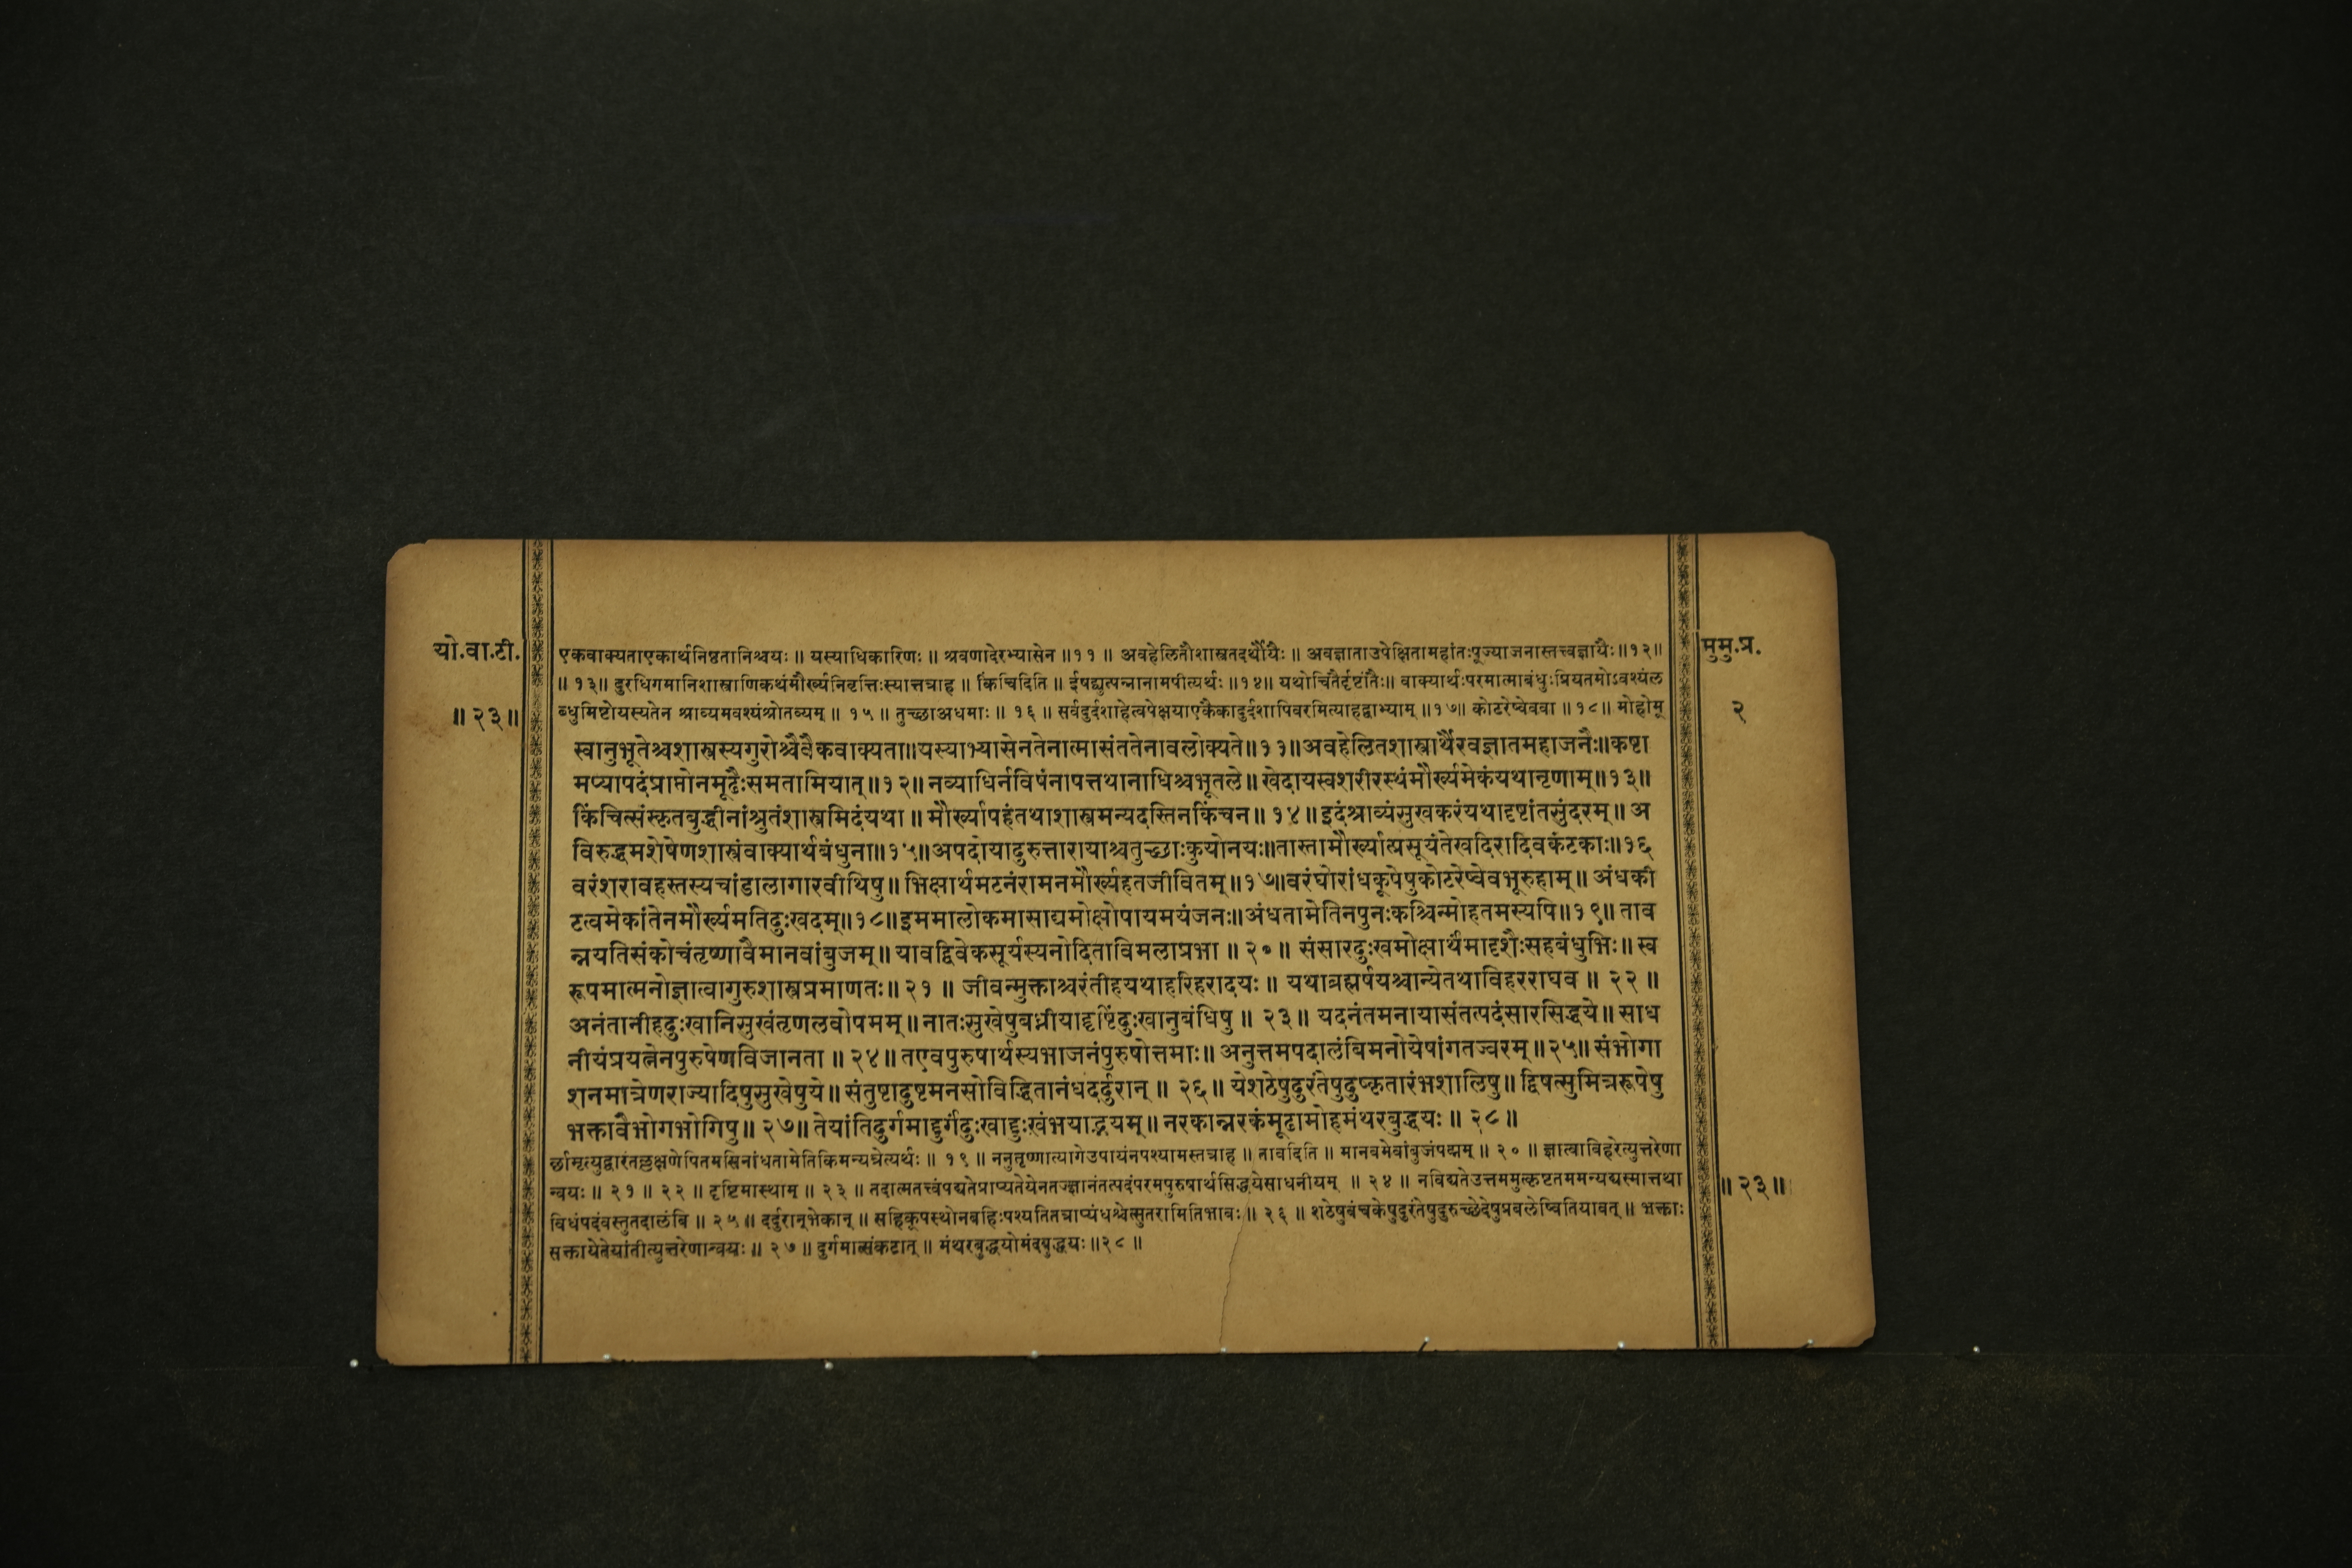 यो.वा.टी.
॥ २३ ॥
एकवाक्यताएकार्थनिष्ठतानिश्चयः ॥ यस्याधिकारिणः ॥ श्रवणादेरभ्यासेन ॥११ ॥ अवहेलितौशास्त्रतदर्थौयैः ॥ अवज्ञाताउपेक्षितामहांतःपूज्याजनास्तत्त्वज्ञायैः॥१२॥
॥ १३॥ दुरधिगमानिशास्त्राणिकथंमौर्ख्यनिवृत्तिःस्यात्तत्राह ॥ किंचिदिति ॥ ईषद्व्युत्पन्नानामपीत्यर्थः ॥१४॥ यथोचितैर्दृष्टांतैः॥ वाक्यार्थःपरमात्माबंधुःप्रियतमोऽवश्यंल
ब्धुमिष्टोयस्यतेन श्राव्यमवश्यंश्रोतव्यम् ॥ १५ ॥ तुच्छाअधमाः ॥ १६ ॥ सर्वदुर्दशाहेत्वपेक्षयाएकैकादुर्दशापिवरमित्याहद्वाभ्याम् ॥१७॥ कोटरेष्वेववा ॥१८॥ मोहोमू
स्वानुभूतेश्चशास्त्रस्यगुरोश्चैवैकवाक्यता॥यस्याभ्यासेनतेनात्मासंततेनावलोक्यते॥११॥अवहेलितशास्त्रार्थैरवज्ञातमहाजनैः॥कष्टा
मप्यापदंप्राप्तोनमूढैःसमतामियात्॥१२॥नव्याधिर्नविषंनापत्तथानाधिश्चभूतले॥खेदायस्वशरीरस्थंमौर्ख्यमेकंयथानृणाम्॥१३॥
किंचित्संस्कृतबुद्धीनांश्रुतंशास्त्रमिदंयथा॥मौर्ख्यापहंतथाशास्त्रमन्यदस्तिनकिंचन॥१४॥इदंश्राव्यंसुखकरंयथादृष्टांतसुंदरम्॥अ
विरुद्धमशेषेणशास्त्रंवाक्यार्थबंधुना॥१५॥आपदोयादुरुत्तारायाश्चतुच्छाःकुयोनयः॥तास्तामौर्ख्यात्प्रसूयंतेखदिरादिवकंटकाः॥१६
वरंशरावहस्तस्यचांडालागारवीथिषु॥भिक्षार्थमटनंरामनमौर्ख्यहतजीवितम्॥१७॥वरंघोरांधकूपेषुकोटरेष्वेवभूरुहाम्॥अंधकी
टत्वमेकांतेनमौर्ख्यमतिदुःखदम्॥१८॥इममालोकमासाद्यमोक्षोपायमयंजनः॥अंधतामेतिनपुनःकश्चिन्मोहतमस्यपि॥१९॥ताव
न्नयतिसंकोचंतृष्णावैमानवांबुजम्॥यावद्विवेकसूर्यस्यनोदिताविमलाप्रभा॥२०॥संसारदुःखमोक्षार्थंमादृशैःसहबंधुभिः॥स्व
रूपमात्मनोज्ञात्वागुरुशास्त्रप्रमाणतः॥२१॥ जीवन्मुक्ताश्चरंतीहयथाहरिहरादयः॥ यथाब्रह्मर्षयश्चान्येतथाविहरराघव॥ २२॥
अनंतानीहदुःखानिसुखंतृणलवोपमम्॥नातःसुखेषुबध्नीयादृष्टिंदुःखानुबंधिषु॥ २३॥ यदनंतमनायासंतत्पदंसारसिद्धये॥साध
नीयंप्रयत्नेनपुरुषेणविजानता॥२४॥तएवपुरुषार्थस्यभाजनंपुरुषोत्तमाः॥अनुत्तमपदालंबिमनोयेषांगतज्वरम्॥२५॥संभोगा
शनमात्रेणराज्यादिषुसुखेषुये॥संतुष्टादुष्टमनसोविद्धितानंधदर्दुरान्॥ २६॥येशठेषुदुरंतेषुदुष्कृतारंभशालिषु॥द्विषत्सुमित्ररूपेषु
भक्तावैभोगभोगिषु॥२७॥तेयांतिदुर्गमाद्दुर्गंदुःखाद्दुःखंभयाद्भयम्॥नरकान्नरकंमूढामोहमंथरबुद्धयः॥ २८॥
र्छामृत्युद्वारंतल्लक्षणेपितमसिनांधतामेतिकिमन्यत्रेत्यर्थः ॥ १९ ॥ ननुतृष्णात्यागेउपायंनपश्यामस्तत्राह ॥ तावदिति ॥ मानवमेवांबुजंपद्मम् ॥ २० ॥ ज्ञात्वाविहरेत्युत्तरेणा
न्वयः ॥ २१ ॥ २२ ॥ दृष्टिमास्थाम् ॥ २३ ॥ तदात्मतत्त्वंपद्यतेप्राप्यतेयेनतज्ज्ञानंतत्पदंपरमपुरुषार्थसिद्धयेसाधनीयम् ॥ २४ ॥ नविद्यतेउत्तममुत्कृष्टतममन्यद्यस्मात्तथा
विधंपदंवस्तुतदालंबि ॥ २५ ॥ दर्दुरान्भेकान् ॥ सहिकूपस्थोनबहिःपश्यतितत्राप्यंधश्चेत्सुतरामितिभावः ॥ २६ ॥ शठेषुवंचकेषुदुरंतेषुदुरुच्छेदेषुप्रबलेष्वितियावत् ॥ भक्ताः
सक्तायेतेयांतीत्युत्तरेणान्वयः ॥ २७ ॥ दुर्गमात्संकटात् ॥ मंथरबुद्धयोमंदबुद्धयः ॥२८ ॥
मुमु.प्र.
२
॥ २३ ॥